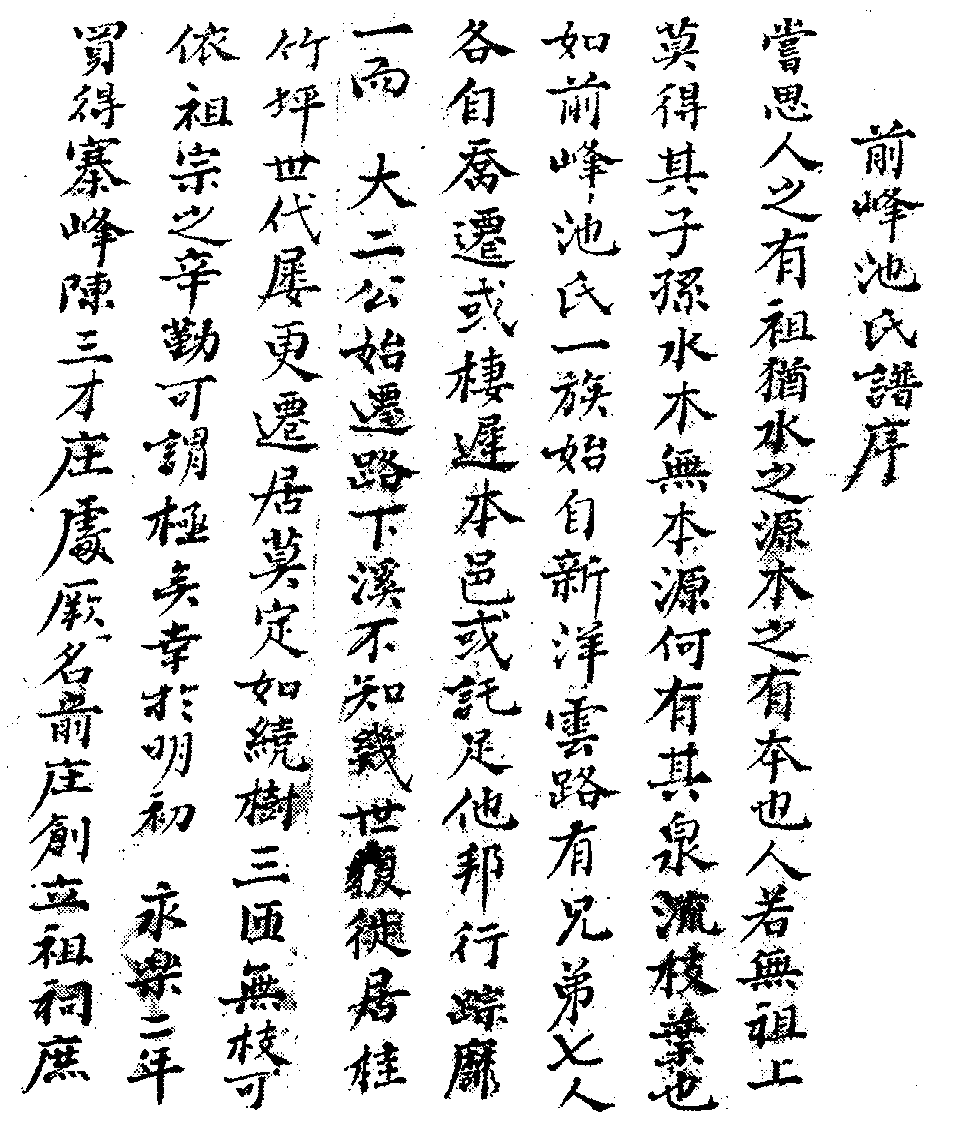 前峰池氏譜序
嘗思人之有祖猶水之源木之有本也人若無祖上
莫得其子孫水木無本源何有其泉流枝葉也
如前峰池氏一族始自新洋雲路有兄弟七人
各自喬遷或棲遲本邑或託足他邦行踪靡
一而 大二公始遷路下溪不知幾世復徙居桂
竹坪世代屡更遷居莫定如繞樹三匝無枝可
依祖宗之辛勤可謂極矣幸於明初 永楽二年
買得寨峰陳三才庄處厥名前庄創立祖祠庶